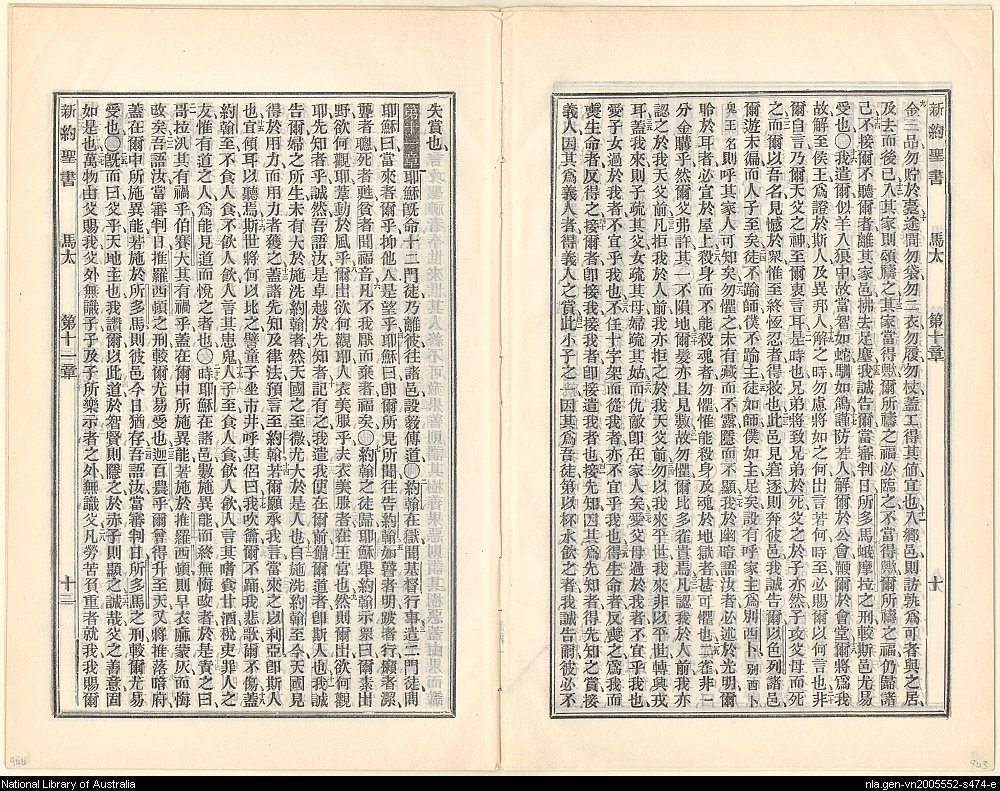 新約聖書 馬太 第十章
金三品勿貯於橐途間勿袋勿二衣勿履勿杖蓋工得其値宜也入鄉邑則訪孰爲可者與之居
及去而後已入其家則頌禱之其家當得歟爾所禱之福必臨之不當得歟爾所禱之福仍歸諸
己不接爾不聽爾者離其家邑拂去足塵我誠告爾當審判日所多馬蛾摩拉之刑較斯邑尤易
受也〇我遣爾似羊入狼中故當智如蛇馴如鴿謹防若人解爾於公會鞭爾於會堂爾將爲我
故解至侯王爲證於斯人及異邦人解之時勿慮將如之何出言若何時至必賜爾以何言也非
爾自言乃爾天父之神至爾衷言耳是時也兄弟將致兄弟於死父之於子亦然子攻父母而死
之而爾以吾名見憾於衆惟至終恆忍者得救也此邑見窘逐則奔彼邑我誠告爾以色列諸邑
爾遊未徧而人子至矣徒不踰師僕不踰主徒如師僕如主足矣設有呼家主爲別西卜別西卜
鬼王名則呼其家人可知矣勿懼之未有藏而不露隱而不顯我於幽暗語汝者必述於光明爾
聆於耳者必宣於屋上殺身而不能殺魂者勿懼惟能殺身及魂於地獄者甚可懼也二雀非一
分金購乎然爾父弗許其一不隕地爾髮亦且見數故勿懼爾比多雀貴焉凡認我於人前我亦
認之於我天父前凡拒我於人前我亦拒之於我天父前勿以我來平世我來非以平世轉興戎
耳蓋我來則子疏其父女疏其母媳疏其姑而仇敵卽在家人矣愛父母過於我者不宜乎我也
愛子女過於我者不宜乎我也不任十字架而從我者亦不宜乎我也得生命者反喪之爲我而
喪生命者反得之接爾者卽接我接我者卽接遣我者也接先知因其爲先知者得先知之賞接
義人因其爲義人者得義人之賞此小子之一因其爲吾徒第以杯水飲之者我誠告爾彼必不
失賞也
第十一章耶穌旣命十二門徒乃離彼往諸邑設敎傳道〇約翰在獄聞基督行事遣二門徒問
耶穌曰當來者爾乎抑他人是望乎耶穌曰卽爾所見所聞往告約翰如瞽者明跛者行癩者潔
聾者聰死者甦貧者聞福音凡不我厭而棄者福矣〇約翰之徒歸耶穌舉約翰示衆曰爾素出
野欲何觀耶葦動於風乎爾出欲何觀耶人衣美服乎夫衣美服者在王宮也然則爾出欲何觀
耶先知者乎誠然吾語汝是卓越於先知者記有之我遣我使在爾前備爾道者卽斯人也我誠
告爾婦之所生未有大於施洗約翰者然天國之至微尤大於是人也自施洗約翰至今天國見
得於用力而用力者獲之蓋諸先知及律法預言至約翰若爾願承我言當來之以利亞卽斯人
也宜傾耳以聽焉斯世將何以比之譬童子坐市井呼其侶曰我吹籥爾不踊我悲歌爾不傷蓋
約翰至不食人食不飲人飲人言其患鬼人子至食人食飲人飲人言其嗜食甘酒稅吏罪人之
友惟有道之人爲能見道而悅之者也〇時耶穌在諸邑數施異能而終無悔改者於是責之曰
哥拉汛其有禍乎伯賽大其有禍乎蓋在爾中所施異能若施於推羅西頓則早衣麻蒙灰而悔
改矣吾語汝當審判日推羅西頓之刑較爾尤易受也迦百農乎爾曾得升至天又將推落暗府
蓋在爾中所施異能若施於所多馬則彼邑今日猶存吾語汝當審判日所多馬之刑較爾尤易
受也〇旣而曰父乎天地主也我讚爾以此道於智賢則隱之於赤子則顯之誠哉父之善意固
如是也萬物由父賜我父外無識子子及子所樂示者之外無識父凡勞苦負重者就我我賜爾
新約聖書 馬太 第十一章
National Library of Australia
nla.gen-vn2005552-s474-e